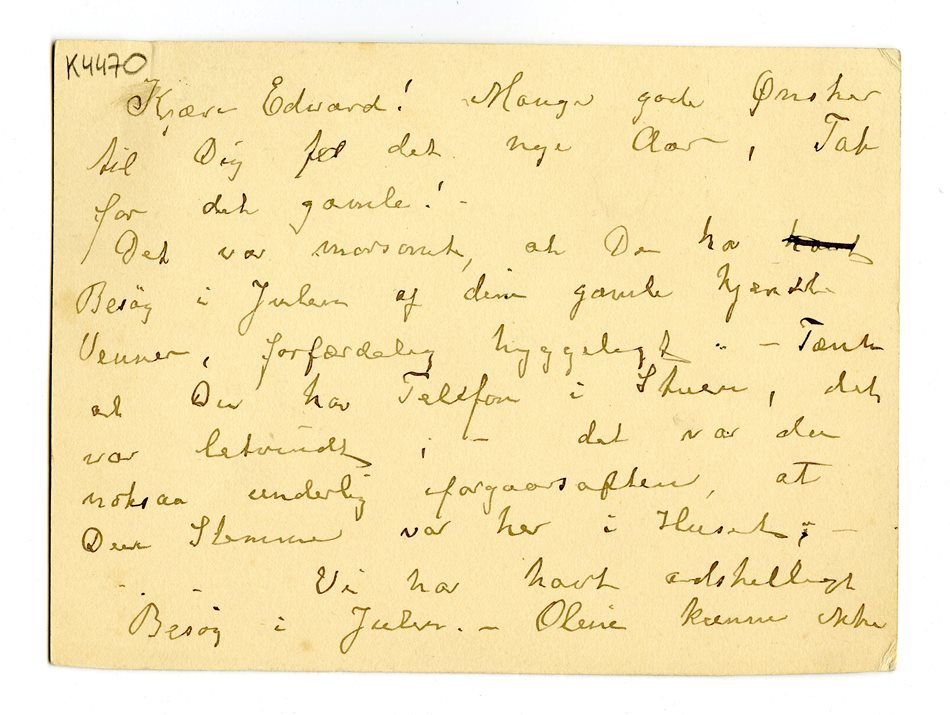 K4470
Kjære Edvard! Mange gode Ønsker
til Dig for det nye Aar, Tak
for det gamle! -
Det var morsomt, at Du har havt
Besøg i Julen af dine gamle kjendte
Venner, forfærdelig hyggeligt. - Tænk
at Du har Telefon i Stuen, det
var letvindt, - det var da
noksaa underlig iforgaarsaften, at
Din Stemme var her i Huset; -
- - Vi har havt adskilligt
Besøg i Julen. - Oline kunne ikke